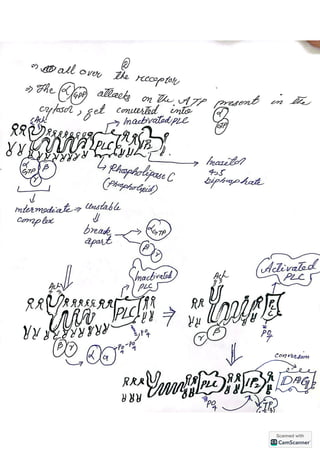 all over the receptor
⇒ The α GTP attacks on the ATP present in the
cytosol, get converted into α
Inactivated PLC
PLC
→ Inositol
4,5
biphosphate
α
GTP
β
γ
→ Phospholipase C
(phospholipid)
Intermediate → unstable
complex
break
apart
α
GTP
β
γ
Inactivated
PLC
Activated
PLC
PLC
β
γ
α
γ
β
PO4
conversion
PLC
IP3
DAG
PO4
Scanned with
CamScanner